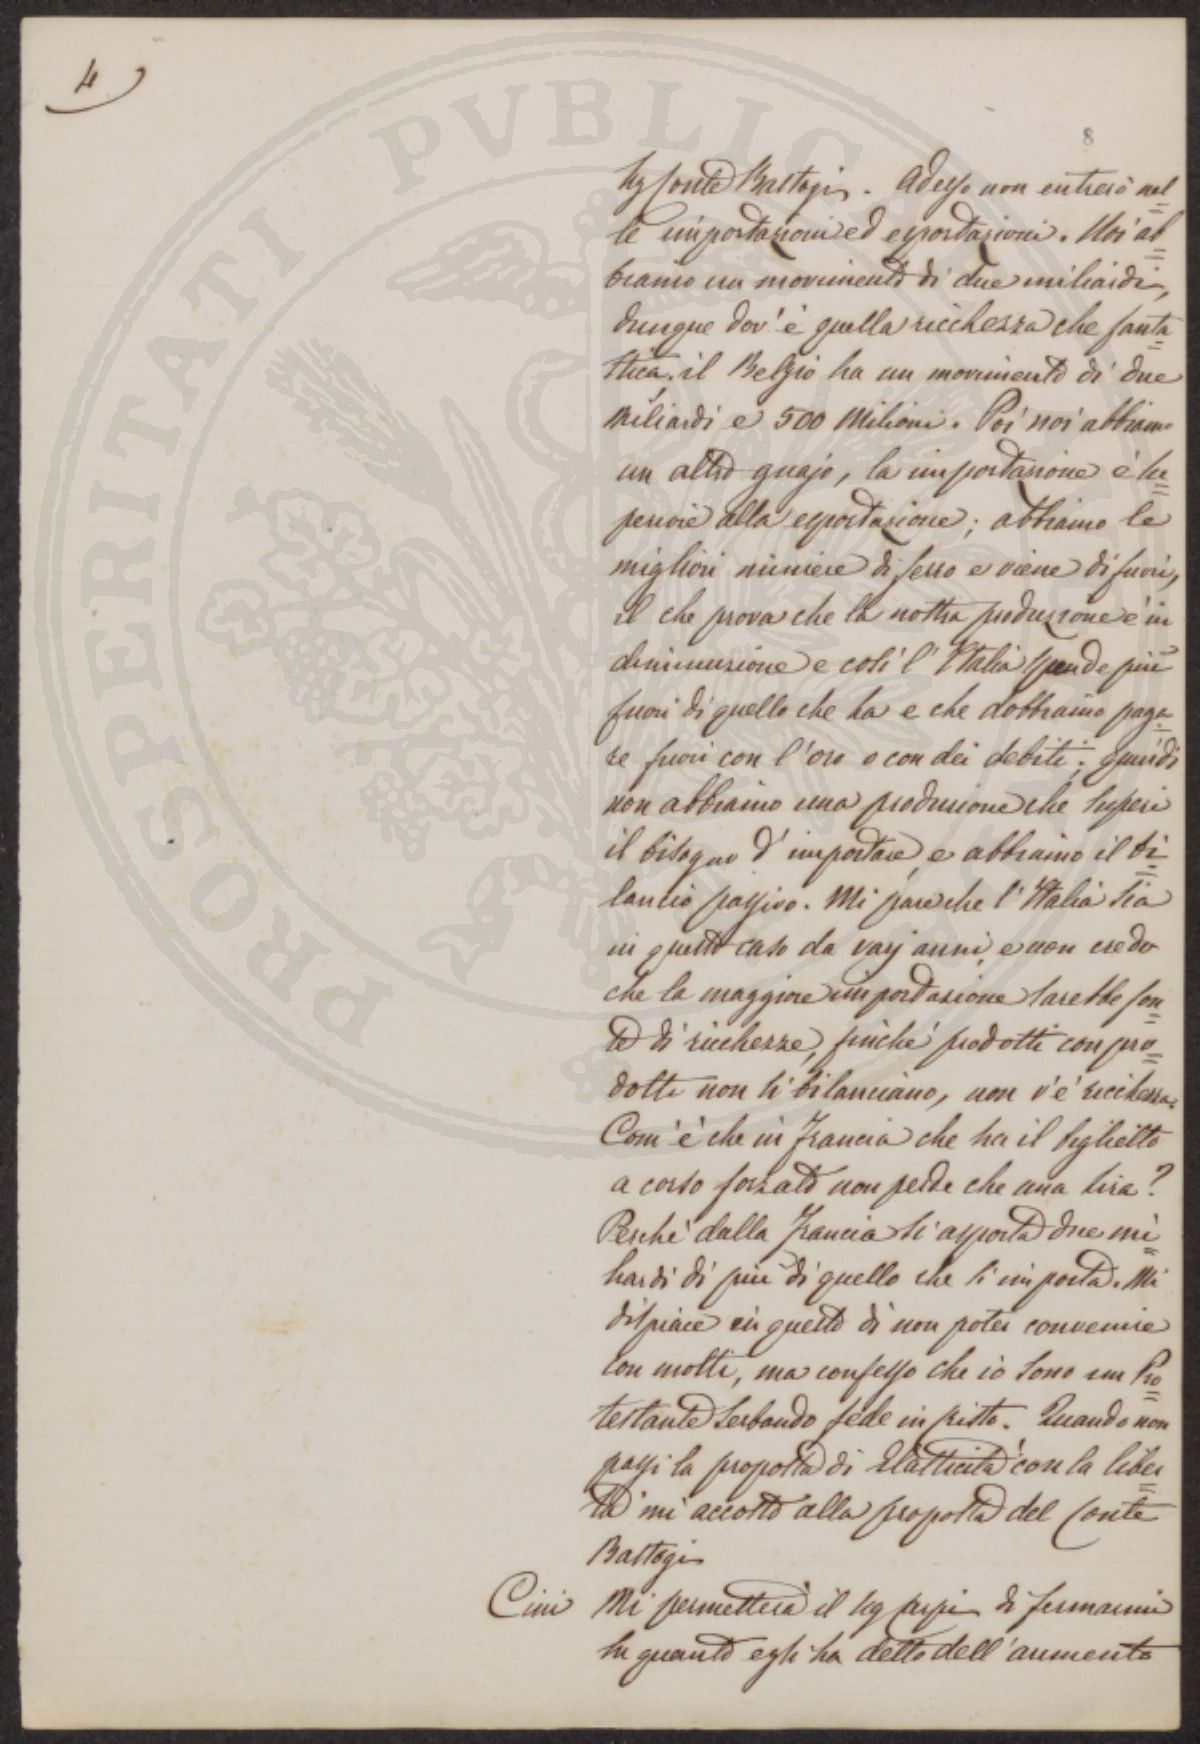 4
8
Sig Conte Bastogi. Adesso non entrerò nel=
le importazioni ed esportazioni. Noi ab=
biamo un movimento di due miliardi,
dunque dov'è quella ricchezza che fanta=
stica. il Belgio ha un movimento di due
Miliardi e 500 Milioni. Poi noi abbiamo
un altro guajo, la importazione è su=
periore alla esportazione; abbiamo le
migliori miniere di ferro e viene di fuori,
il che prova che la nostra produzione è in
diminuzione e così l'Italia spende più
fuori di quello che ha e che dobbiamo paga=
re fuori con l'oro o con dei debiti; quindi
non abbiamo una produzione che superi
il bisogno d'importare, e abbiamo il bi=
lancio passivo. Mi pare che l'Italia sia
in questo caso da varj anni, e non credo
che la maggiore importazione sarebbe fon=
te di ricchezze, finchè prodotti con pro=
dotti non si bilanciano, non v'è ricchezza.
Com'è che in Francia che ha il biglietto
a corso forzato non perde che una lira?
Perchè dalla Francia si asporta due mi=
liardi di più di quello che si importa. Mi
dispiace in questo di non poter convenire
con molti, ma confesso che io sono un Pro=
testante serbando fede in Cristo. Quando non
passi la proposta di Elasticità con la liber=
tà mi accosto alla proposta del Conte
Bastogi
Cini Mi permetterà il Sig Carpi di fermarmi
su quanto egli ha detto dell'aumento
PROSPERITATI PVBLICAE